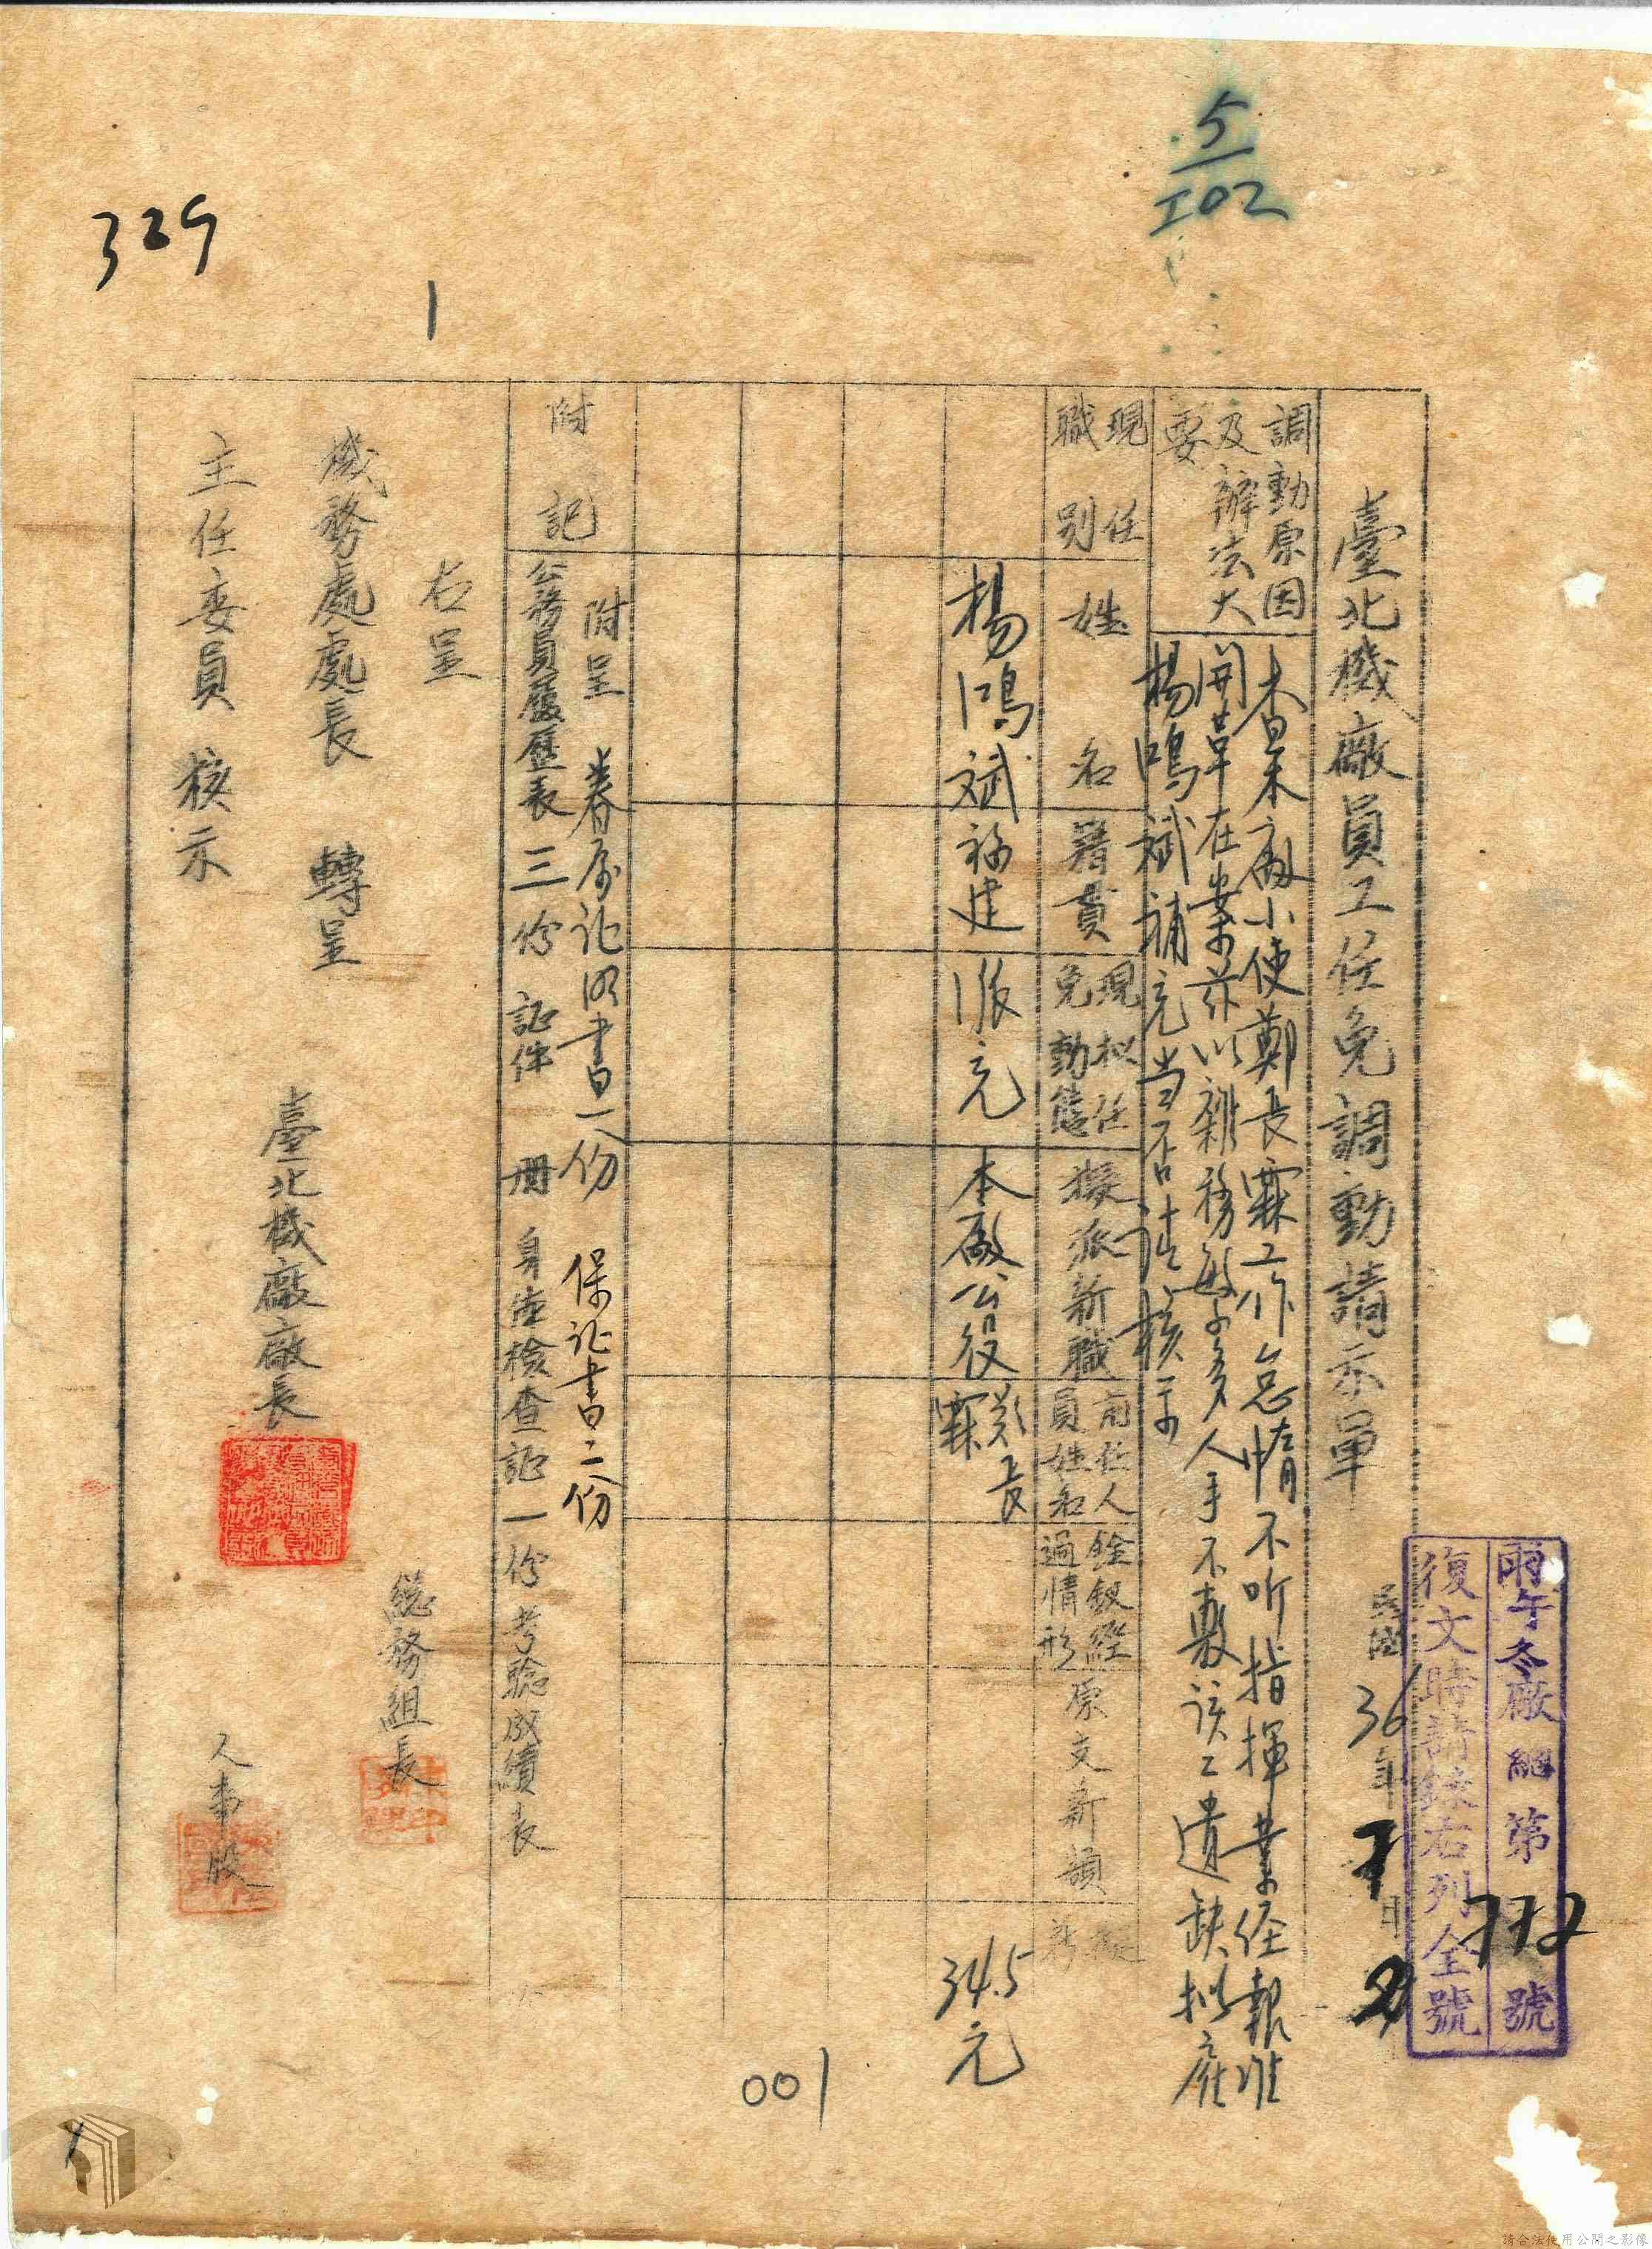 5/102
329
1
雨午冬廠總第772號
復文時請錄右列全號
臺北機廠員工任免調動請示單
民國36年7月2日
調動原因及辦法大要
本廠小使鄭長霖工作怠惰不听指揮業經報准
開革在案茲以雜務繁多人手不敷該工遺缺拟雇
楊鴻斌補充当否請核示
現任職別
姓名
籍貫
現拟任免動態
擬派新職
前任人員姓名
銓敍經過情形
原支薪額
擬薪
楊鴻斌
福建
派充
本廠公役
鄭長霖
34.5元
附記
附呈 眷屬证明書一份 保证書二份
公務員履歷表三份 証件 册 身体檢查証一份 考驗成績表
右呈
機務處處長 轉呈
主任委員 核示
臺北機廠廠長
總務組長
人事股
001
1
請合法使用公開之影像